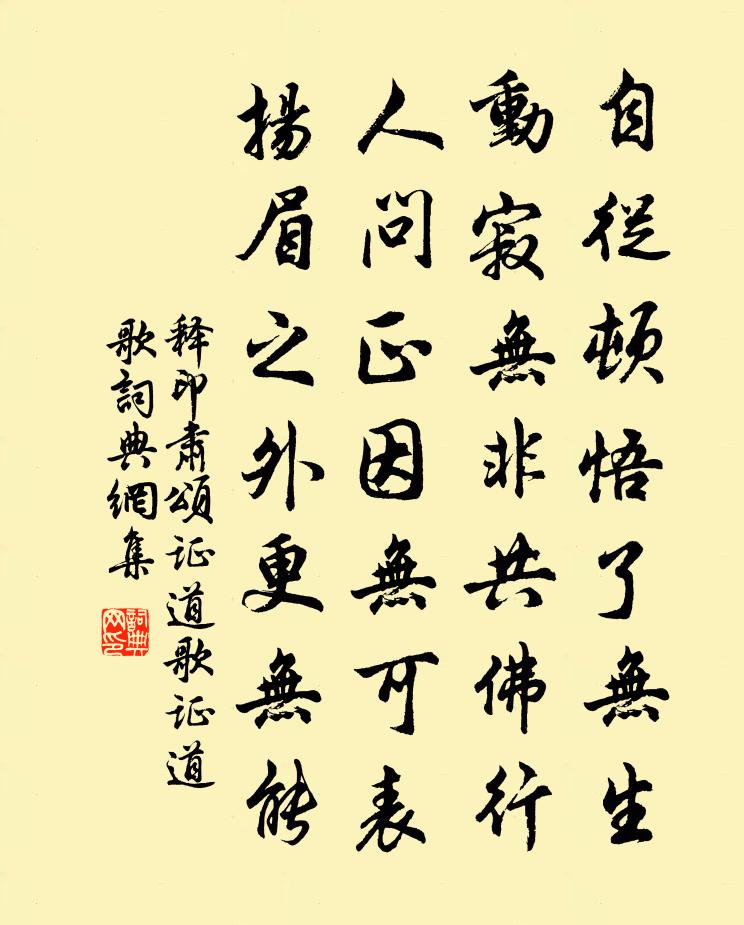 自從頓悟了無生
動寂無非共佛行
人問正因無可表
揚眉之外更無能
释印肃頌证道歌证道
歌詞典網集
詞典
网印